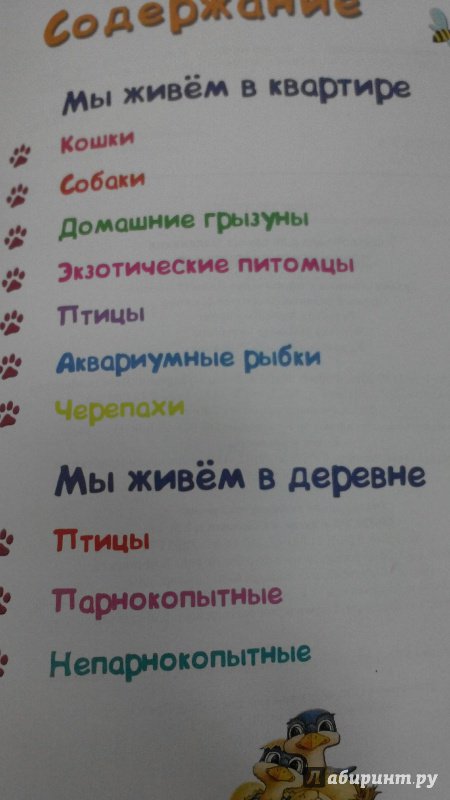 Содержание
Мы живём в квартире
Кошки
Собаки
Домашние грызуны
Экзотические питомцы
Птицы
Аквариумные рыбки
Черепахи
Мы живём в деревне
Птицы
Парнокопытные
Непарнокопытные
Лабиринт.ру